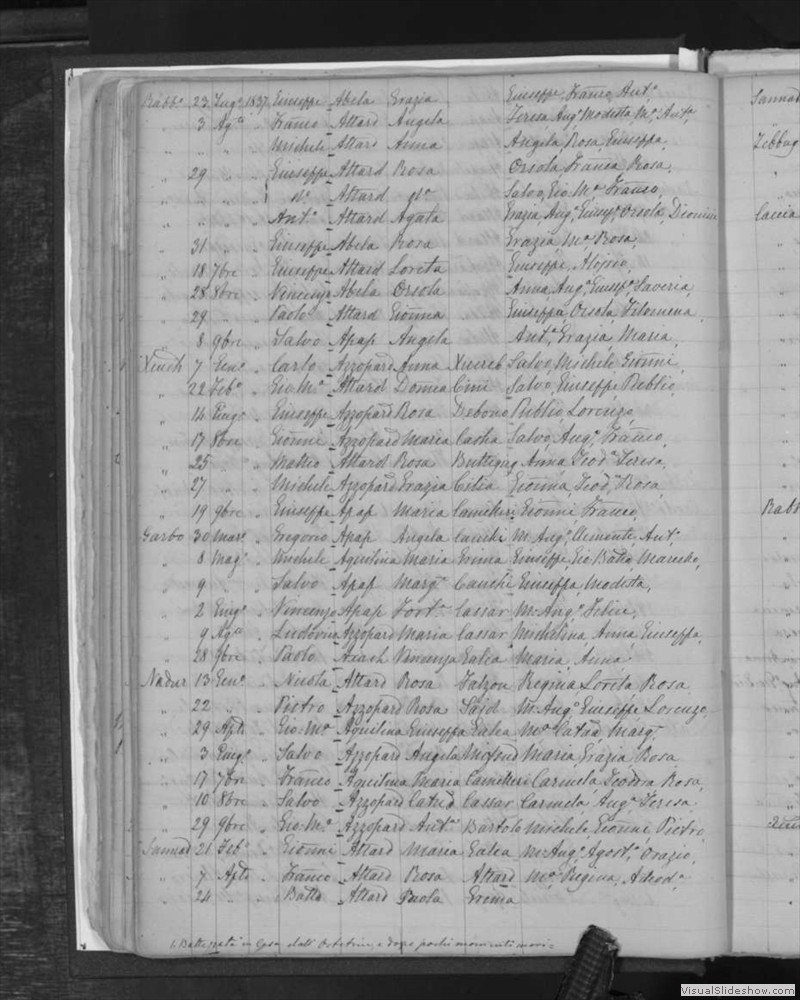 Rabbo 23 Lug.o 1837 Giuseppe Abela Grazia Giuseppe, Franco, Ant.a
" 3 Ag.to " Franco Attard Angela Teresa, Aug.a Modesta, M.a, Ant.a,
" " " Michele Attard Anna Angela, Rosa, Giuseppa,
" 29 " " Giuseppe Attard Rosa Orsola, Franca, Rosa,
" " " d.o Attard d.a Salvo, Gio. M.a, Franco,
" " " Ant.o Attard Agata Grazia, Aug.a, Giusep.a, Orsola,
" 31 " " Giuseppe Abela Rosa Grazia, M.a, Rosa,
" 18 7bre " Giuseppe Attard Loreta Giuseppe, Aloisio,
" 28 8bre " Vincenzo Abela Orsola Anna, Aug.a, Giusep.a, Saveria,
" 29 " " Paolo Attard Gionna Giuseppa, Orsola, Filomena,
" 8 9bre " Salvo Apap Angela Ant.a, Grazia, Maria,
7 Gen.o " Carlo Azzopard Anna Xuereb Salvo, Michele, Gionni,
" 22 Feb.o " Gio. M.a Attard Domca Cini Salvo, Giuseppe, Publio,
" 14 Giug.o " Giuseppe Azzopard Rosa Debono Publio, Lorenzo,
" 17 8bre " Gionni Azzopard Maria Casha Salvo, Aug.o, Franco,
" 25 " " Matteo Attard Rosa Buttigieg Anna, Teod.a, Teresa,
" 27 " " Michele Azzopard Grazia Gionna, Teod.a, Rosa,
" 19 9bre " Giuseppe Apap Maria Camilleri Gionni, Franco,
Garbo 30 Mar.o " Gregorio Apap Angela Cauchi M. Aug.a, Clemente, Ant.a
" 8 Mag.o " Michele Aquilina Maria Grima Giuseppe, Gio Batta,
" 9 " " Salvo Apap Marg.a Cauchi Giuseppa, Modesta,
" 2 Giug.o " Vincenzo Apap Fort.a Cassar M. Aug.a, Felice,
" 9 Ag.to " Ludovico Azzopard Maria Cassar Michelina, Anna, Giuseppa,
" 28 9bre " Paolo Axach Vincenza Galea Maria, Anna
Nadur 13 Gen.o " Nicola Attard Rosa Falzon Regina, Loreta, Rosa,
" 22 " " Pietro Azzopard Rosa Said M. Aug.a, Giuseppe, Lorenzo,
" 29 Aple " Gio. M.a Aquilina Giuseppa Galea M.a, Catad, Marg.a
" 3 Giug.o " Salvo Azzopard Angela Maria, Grazia, Rosa,
" 17 7bre " Franco Aquilina Maria Camilleri Carmela, Teodora, Rosa,
" 10 8bre " Salvo Azzopard Catad Cassar Carmela, Aug.a, Teresa,
" 29 9bre " Gio. M.a Azzopard Ant.a Bartolo Michele, Gionni, Pietro,
Sannat 21 Feb.o " Gionni Attard Maria Galea M. Aug.a, Agost.o, Orazio,
" 7 Aple " Franco Attard Rosa Attard M.a, Regina, Adeod.a
" 24 " " Batta Attard Paola Grima
1. Battezzata in casa dall' Ostetrice e dopo pochi momenti morì
Sannat
Zebbug
Caccia
Rabt
VisualSlideshow.com